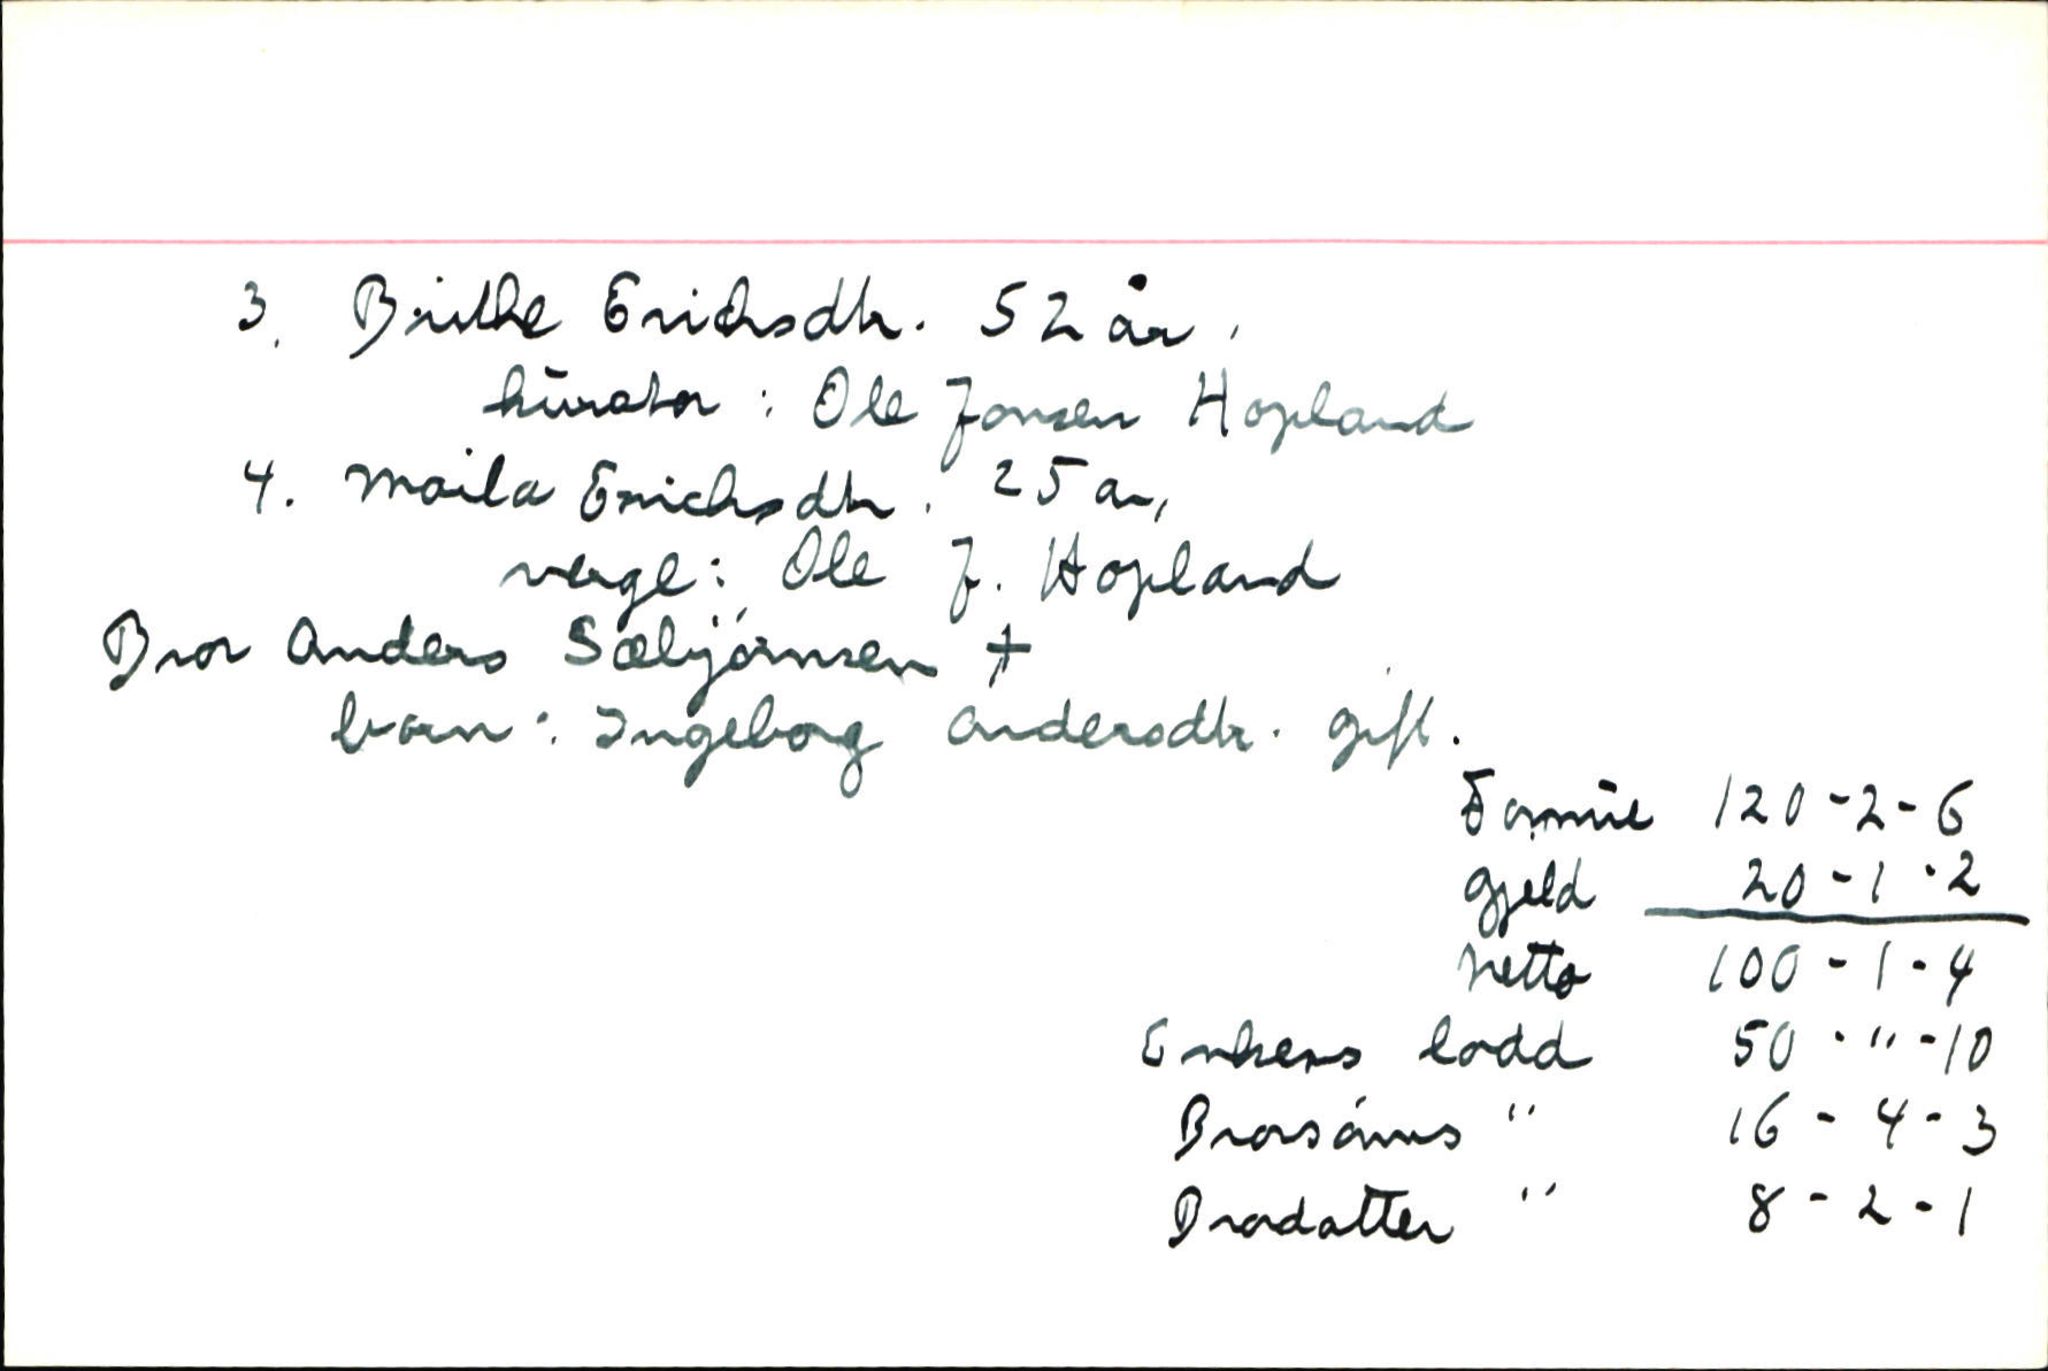 3. Brithe Erichsdtr. 52 år,
kurator: Ole Jonsen Hopland
4. Maila Erichsdtr. 25 ar,
verge: Ole J. Hopland
Bror Anders Sæbjörnsen +
barn: Ingeborg Andersdtr. gift.
Formue 120-2-6
Gjeld 20-1-2
Netto 100-1-4
Enkens lodd 50-"-10
Brorsöns " 16-4-3
Brordatter " 8-2-1